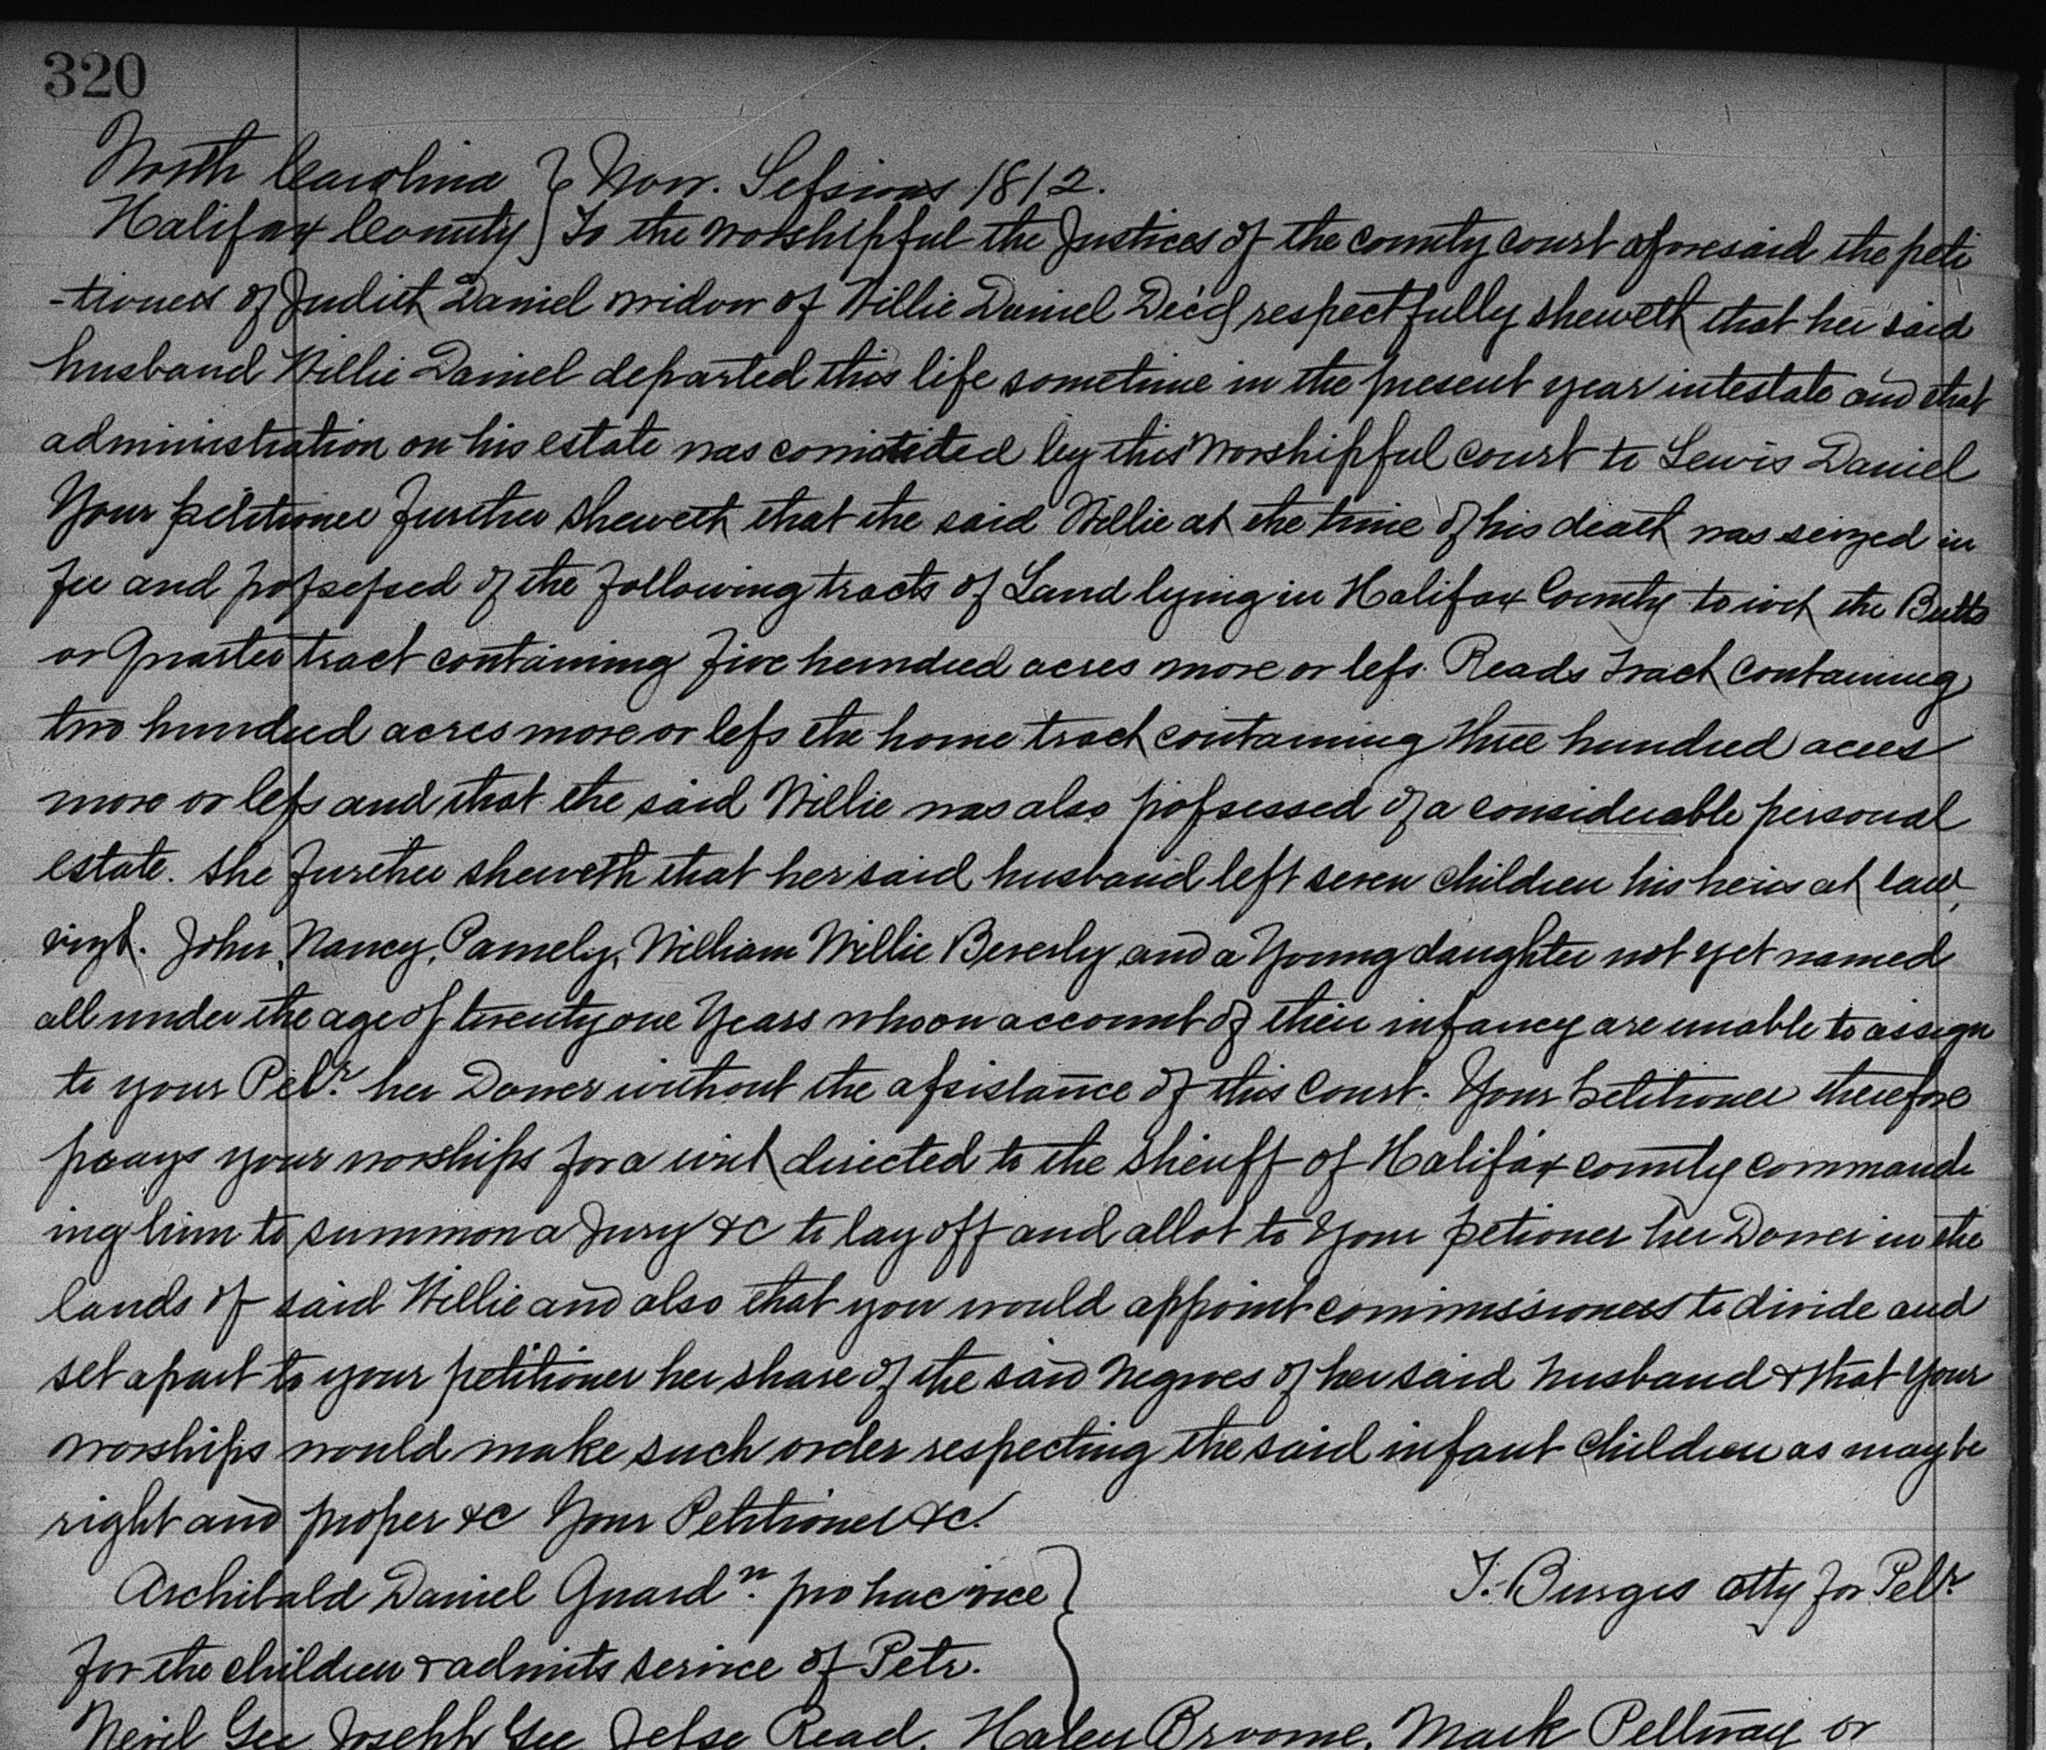 320
North Carolina } Nov. Sessions 1812.
Halifax County } To the worshipful the Justices of the county court aforesaid the peti
-tioners of Judith Daniel widow of Willie Daniel Dec'd respectfully sheweth that her said
husband Willie Daniel departed this life sometime in the present year intestate and that
administration on his estate was comitted by this worshipful court to Lewis Daniel
Your petitioner further sheweth that the said Willie at the time of his death was seized in
fee and possessed of the following tracts of Land lying in Halifax County to wit the Butts
or Quarter tract containing five hundred acres more or less. Reads Tract containing
two hundred acres more or less the home tract containing three hundred acres
more or less and that the said Willie was also possessed of a considerable personal
estate. She further sheweth that her said husband left seven children his heirs at law,
vizt. John, Nancy, Pamely, William Willie Beverly and a Young daughter not yet named
all under the age of twenty one Years who on account of their infancy are unable to assign
to your Petr. her Dower without the assistance of this Court. Your Petitioner therefore
prays your worships for a writ directed to the Sheriff of Halifax county command
ing him to summon a Jury &c to lay off and allot to Your petioner her Dower in the
lands of said Willie and also that you would appoint commissioners to divide and
set apart to your petitioner her share of the said Negroes of her said husband & that Your
worships would make such order respecting the said infant children as may be
right and proper &c Your Petitioner &c.
Archibald Daniel Guardn. pro hac vice } T. Burges atty for Petr
for the children & admits service of Petr.
Nevil Gee Joseph Gee Jesse Read, Haley Broome, Mark Pettway or